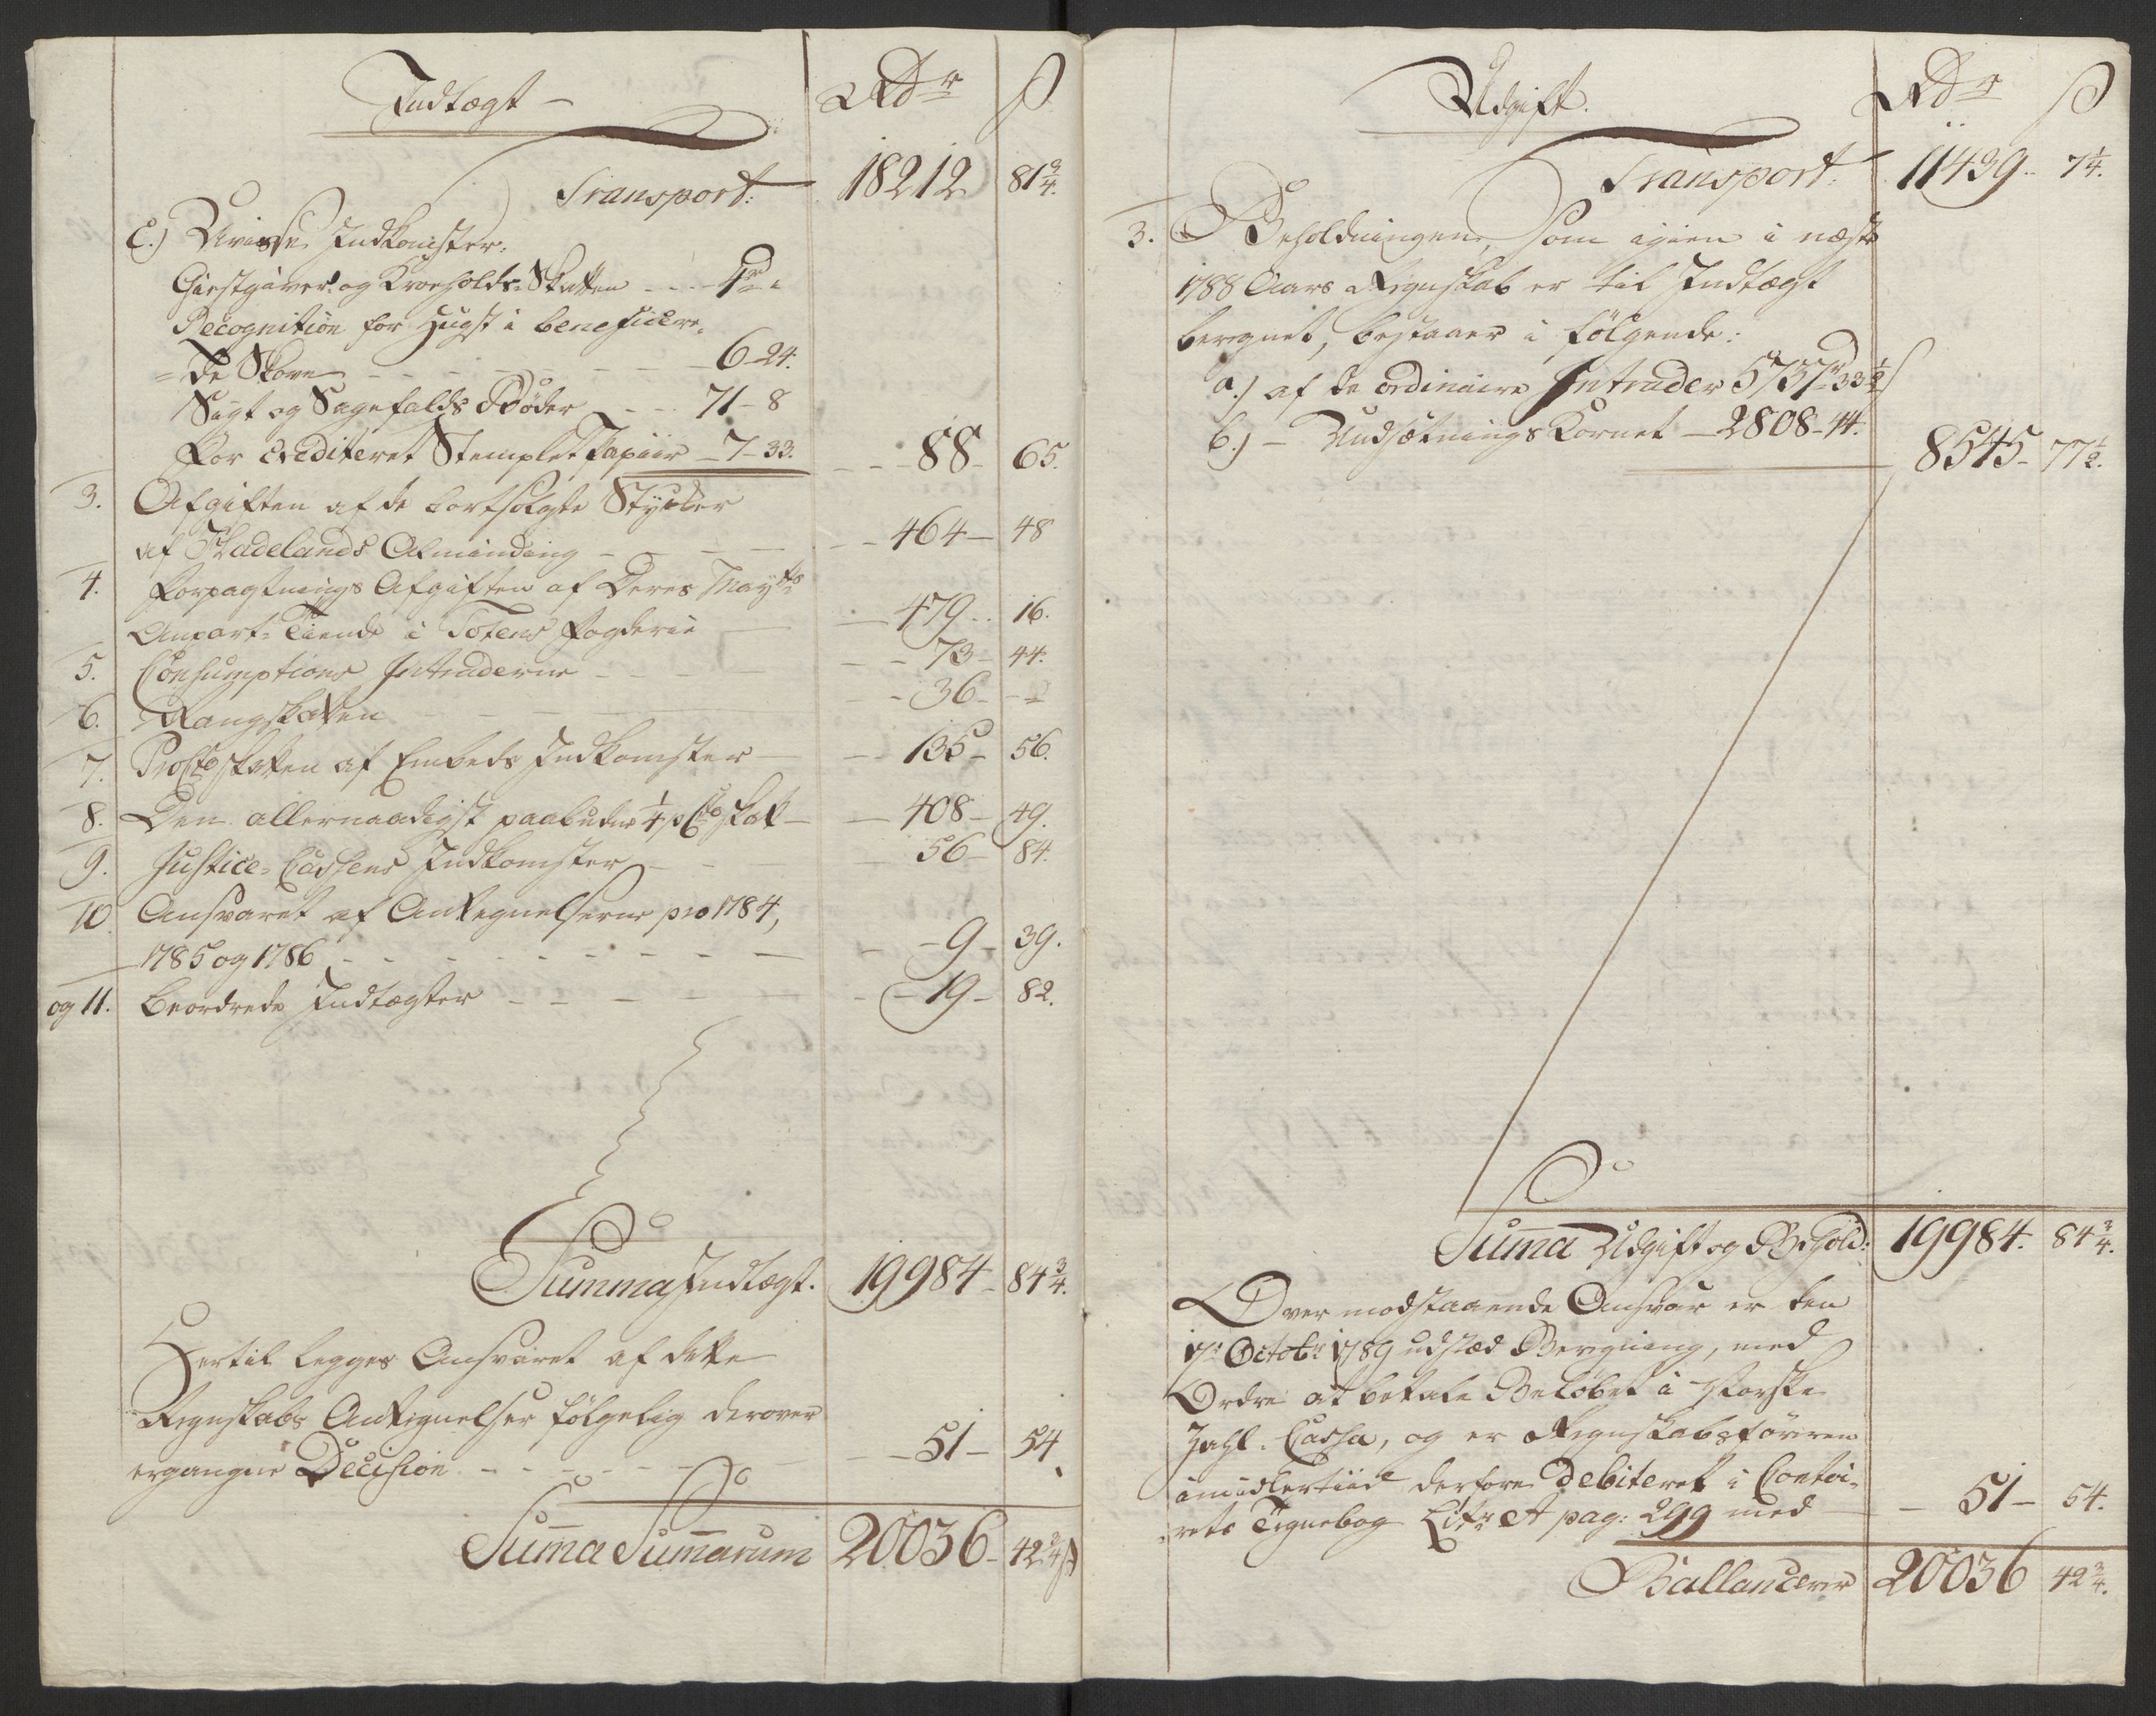 Indtægt Rdr ß
Transport: 18212 81 3/4.
C.) Uvisse Indkomster.
Giestgiver- og Kroeholds-Skatten 4 rd
Recognition for Hugst i beneficere-
=de Skove 6-24.
Sigt og Sagefalds Bøder 71-8
For crediteret Stemplet Papiir 7-33. 88 65.
3. Afgiften af de bortsolgte Stycker
af Hadelands Alminding 464 48
4. Forpagtnings Afgiften af Deres Mayts
Anpart-Tiende i Totens Fogderie 479 16.
5. Consumptions Intraderne 73 44.
6. Rangskatten 36 -
7. ProCto skatten af Embeds Indkomster 135 56.
8. Den allernaadigst paabudne 1/4 pCto skat 408 49.
9. Justice-Cassens Indkomster 56 84.
10 Ansvaret af Antegnelserne pro 1784,
1785 og 1786 9 39.
og 11. Beordrede Indtægter 19 82.
Summa Indtægt. 19984 84 3/4.
Hertil legges Ansvaret af dette
Regnskabs Antegnelser følgelig derover
ergangne Decision 51 54
Suma Sumarum 20036 42 3/4 ß
Udgift. Rdr ß
Transport: 11439 7 1/4.
3. Beholdningen, som igien i næste
1788 Aars Regnskab er til Indtægt
beregnet, bestaaer i følgende:
a.) af de ordinaire Intrader 5737 rd 33 1/2 ß
b.) - Undsætnings Kornet 2808-44. 8545 77 1/2.
Suma Udgift og Behold: 19984. 84 3/4.
Over modstaaende Ansvar er den
17de Octobr 1789 udstæd Beregning, med
Ordre at betale Beløbet i Norske
Zahl-Cassa, og er Regnskabsføreren
imidlertiid derfore debiteret i Contoi-
rets Tegnebog Litr A pag: 299 med 51 54.
Ballancerer 20036 42 3/4.